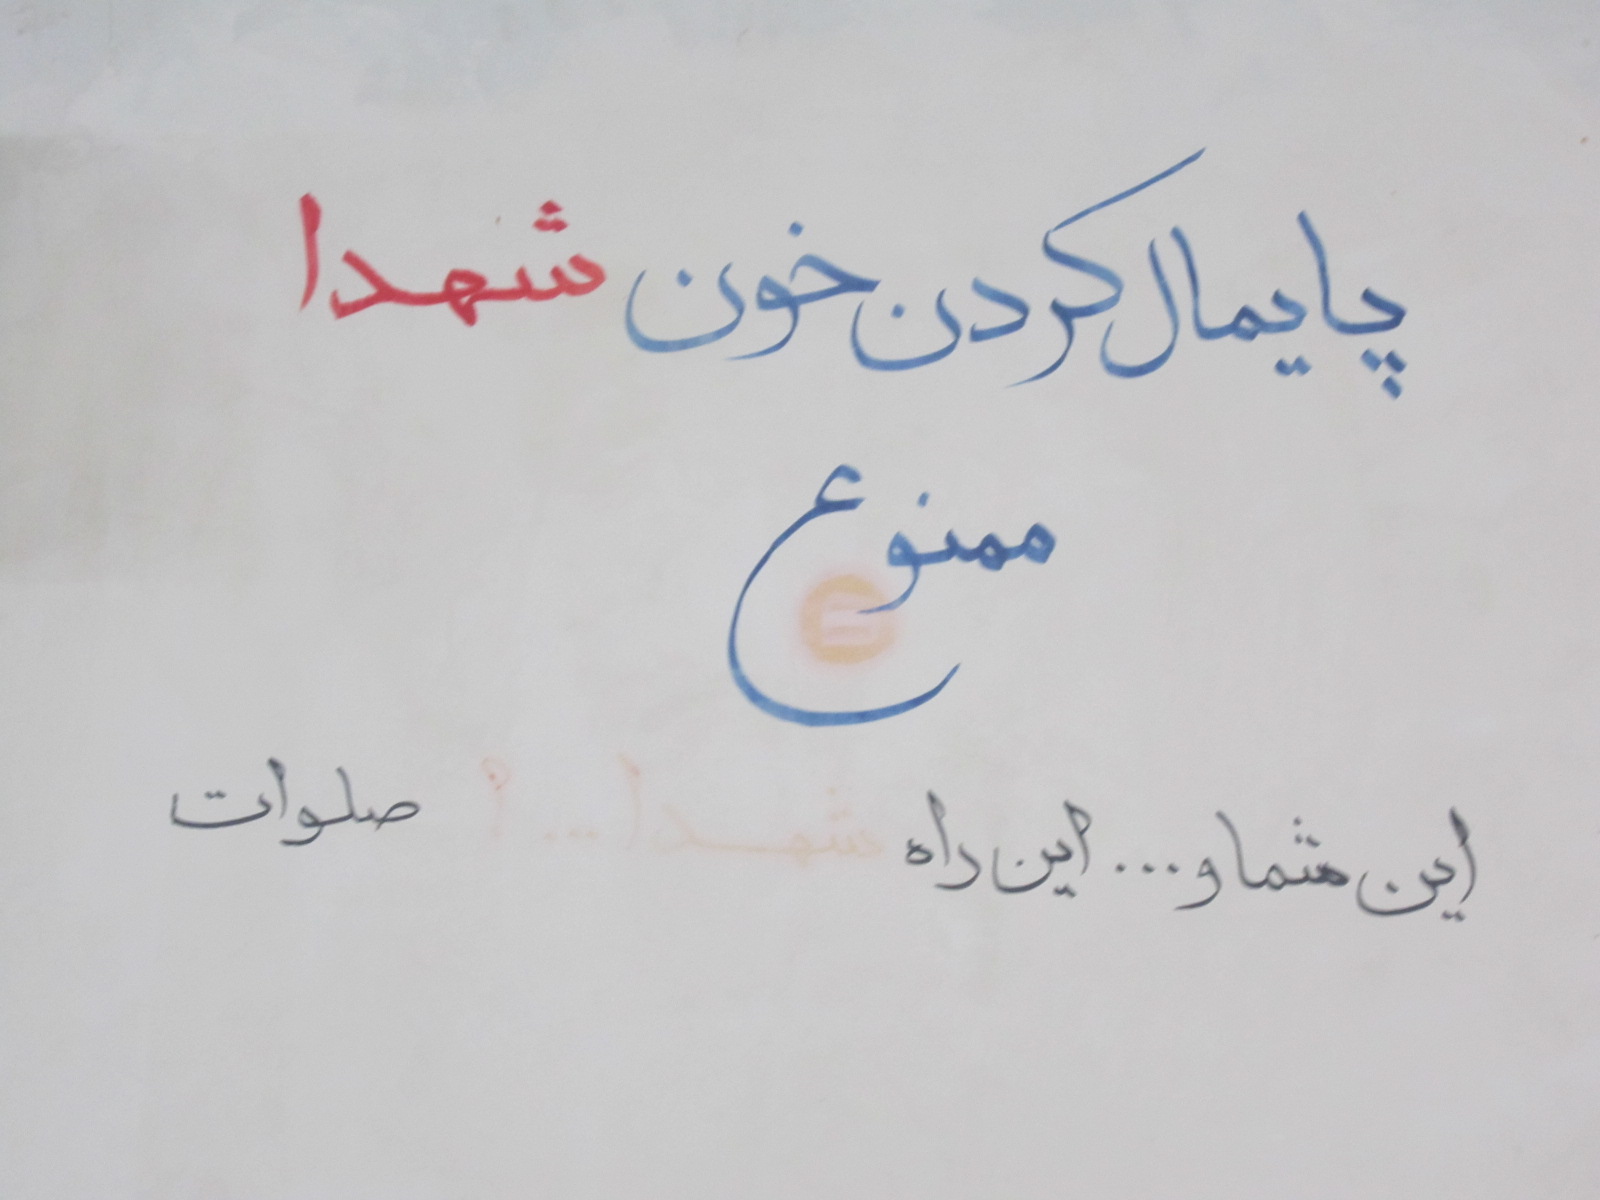 پایمال کردن خون شهدا
ممنوع
این شما و... این راه شهدا...؟ صلوات